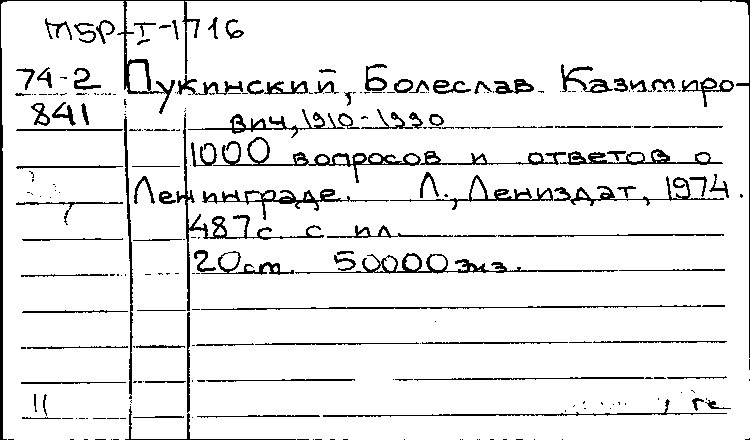 М5Р-I-1716
74-2 Пукинский, Болеслав Казимиро-
841 вич, 1910-1990
1000 вопросов и ответов о
Ленинграде. Л., Лениздат, 1974.
487с. с ил.
20 cm. 50000 экз.
11